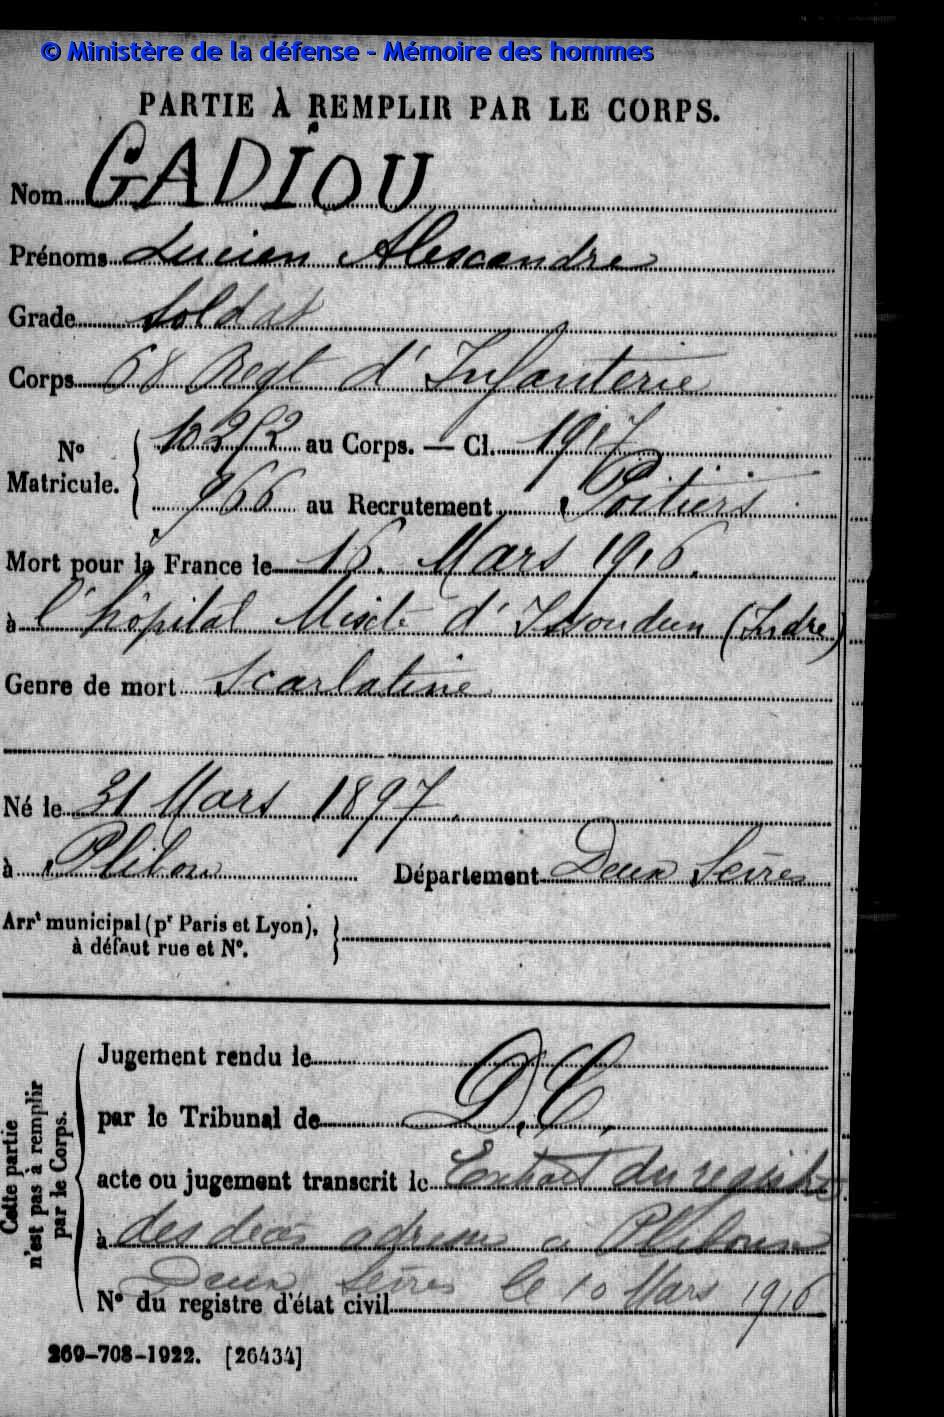 © Ministère de la défense - Mémoire des hommes
PARTIE À REMPLIR PAR LE CORPS.
Nom GADIOU
Prénoms Lucien Alexandre
Grade Soldat
Corps 68 Regt d'Infanterie
N° Matricule. { 12252 au Corps. — Cl. 1917
966 au Recrutement Poitiers
Mort pour la France le 16 Mars 1916.
à l'hôpital Mixte d'Issoudun (Indre)
Genre de mort Scarlatine
Né le 31 Mars 1897.
à Plibou Département Deux Sèvres
Arrt municipal (pr Paris et Lyon), à défaut rue et N°. }
Cette partie n'est pas à remplir par le Corps.
Jugement rendu le
par le Tribunal de D.C.
acte ou jugement transcrit le Extrait du registre
à des décès adressé à Plibou
Deux Sèvres le 10 Mars 1916
N° du registre d'état civil
269-708-1922. [26434]